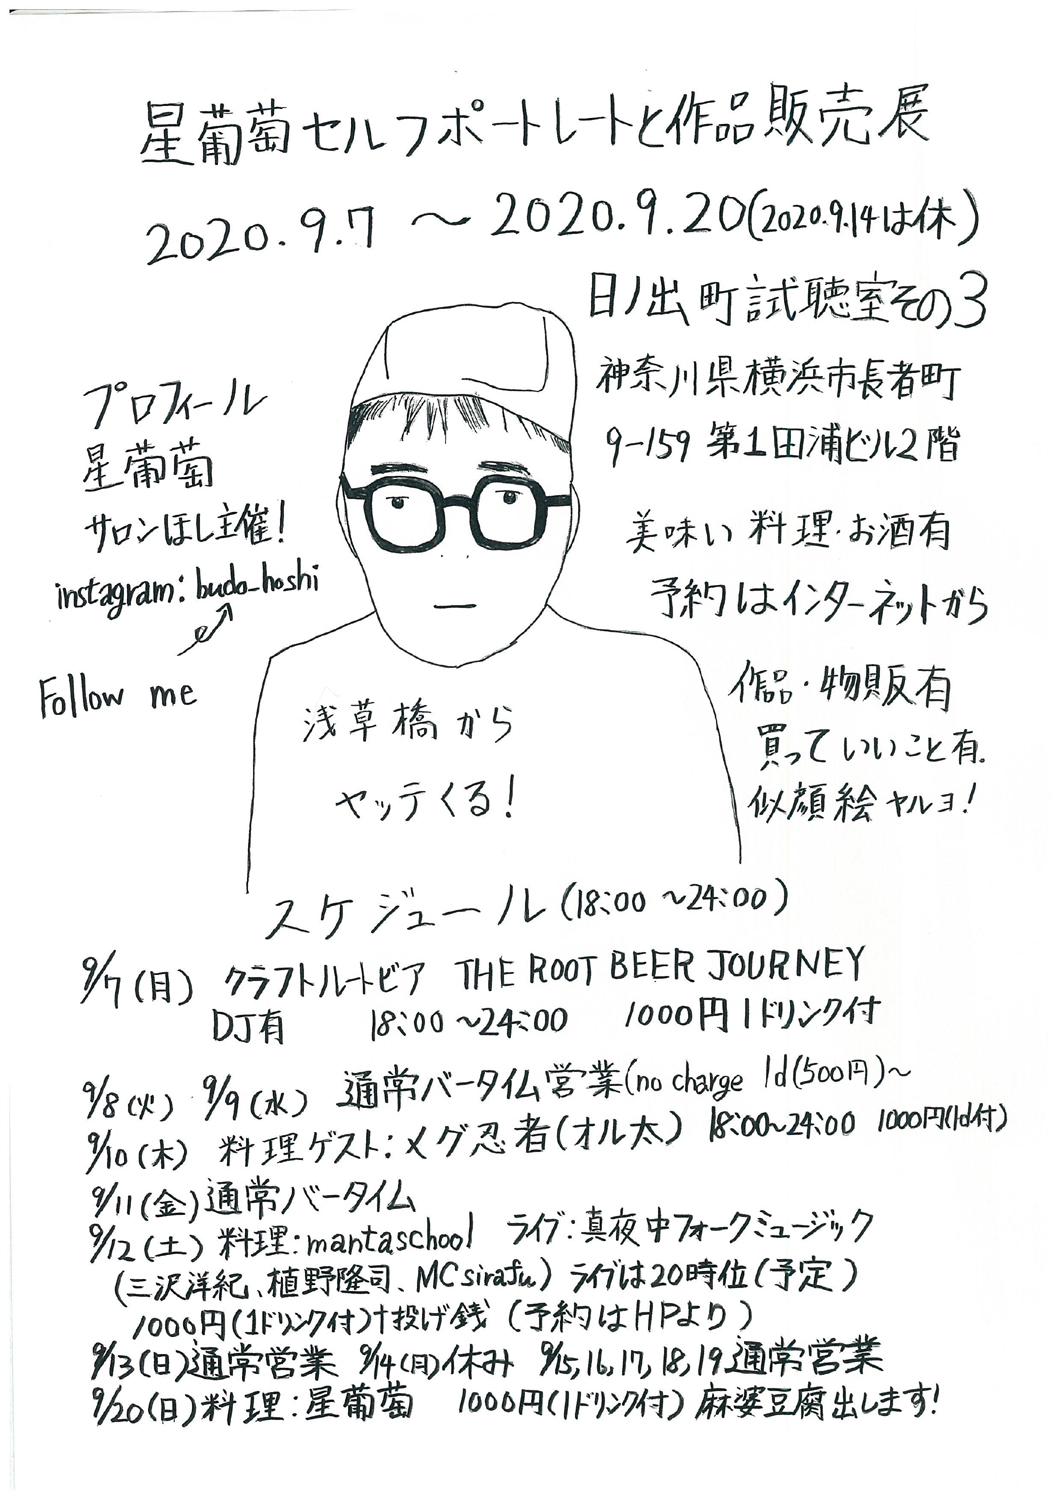 星葡萄セルフポートレートと作品販売展
2020.9.7 ～ 2020.9.20(2020.9.14は休)
日ノ出町試聴室その3
神奈川県横浜市長者町
9-159 第1田浦ビル2階
美味い料理・お酒有
予約はインターネットから
作品・物販有
買っていいこと有.
似顔絵ヤルヨ!
プロフィール
星葡萄
サロンほし主催!
instagram: budo_hoshi
Follow me
浅草橋から
ヤッテくる!
スケジュール(18:00 ～24:00)
9/7(月) クラフトルートビア THE ROOT BEER JOURNEY
DJ有 18:00 ～24:00 1000円1ドリンク付
9/8(火) 9/9(水) 通常バータイム営業(no charge 1d(500円)～
9/10(木) 料理ゲスト:メグ忍者(オル太) 18:00～24:00 1000円(1d付)
9/11(金)通常バータイム
9/12(土)料理:mantaschool ライブ:真夜中フォークミュージック
(三沢洋紀、植野隆司、MCsirafu) ライブは20時位(予定)
1000円(1ドリンク付)+投げ銭(予約はHPより)
9/13(日)通常営業 9/14(月)休み 9/15,16,17,18,19通常営業
9/20(日)料理:星葡萄 1000円(1ドリンク付)麻婆豆腐出します!